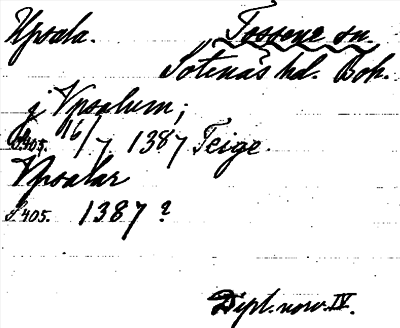 Upsala. Tossene sn.
Sotenäs hd. Boh.
j Vpsalum;
S. 405. 16/7 1387 Teige.
Vpsalar
S. 405. 1387?
Dipl. norv. IV.